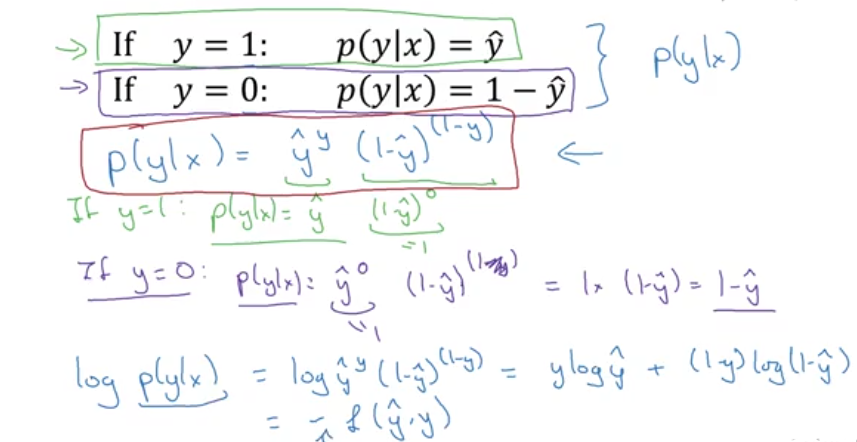 If y = 1: p(y|x) = ŷ
If y = 0: p(y|x) = 1 − ŷ } p(y|x)
p(y|x) = ŷ^y (1-ŷ)^(1-y) ←
If y=1: p(y|x) = ŷ (1-ŷ)^0 =1
If y=0: p(y|x) = ŷ^0 (1-ŷ)^(1-y) = 1× (1-ŷ) = 1-ŷ
=1
log p(y|x) = log ŷ^y (1-ŷ)^(1-y) = y log ŷ + (1-y) log(1-ŷ)
= - ℒ(ŷ,y)